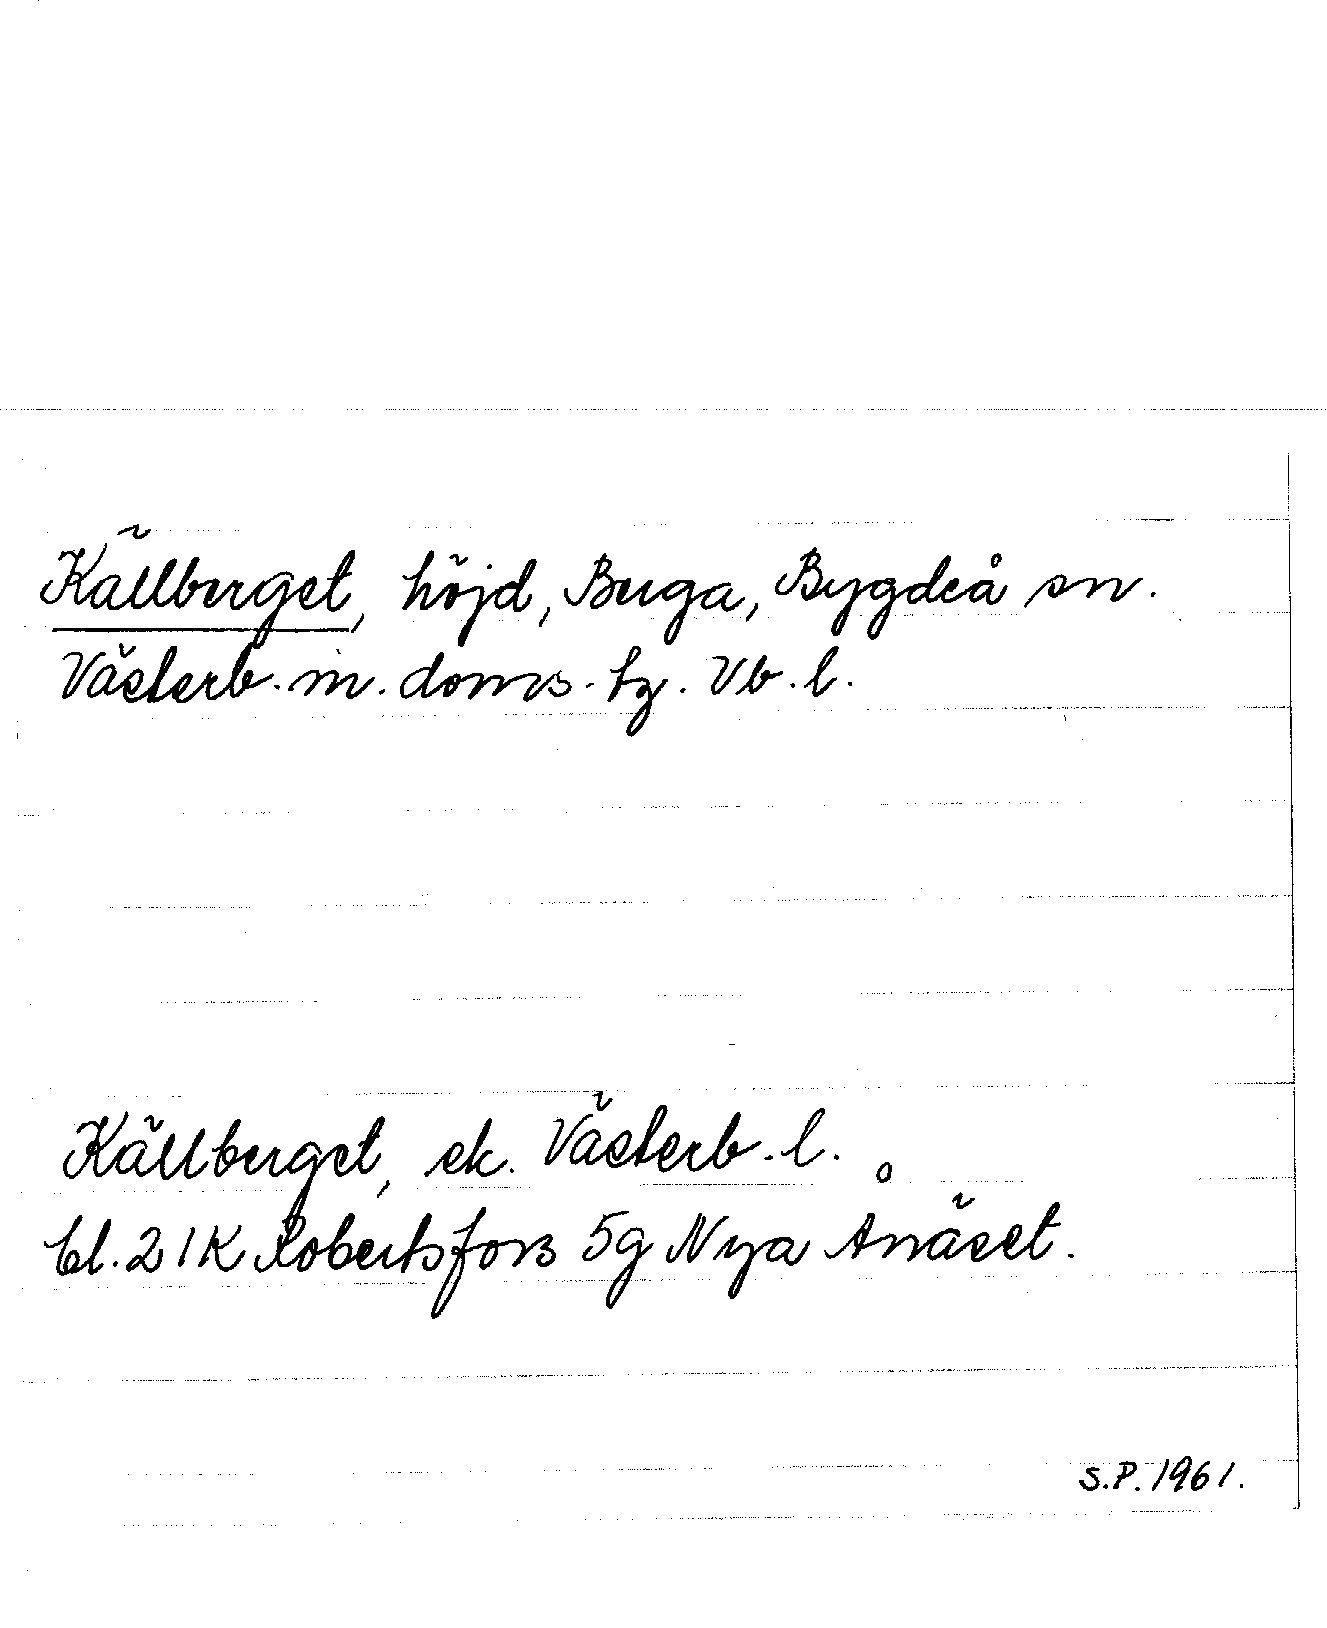 Källberget, höjd, Buga, Bygdeå sn.
Västerb. m. doms. tg. Vb. l.
Källberget, ek. Västerb. l.
bl. 21K Robertsfors 5g Nya Ånäset.
S.P. 1961.